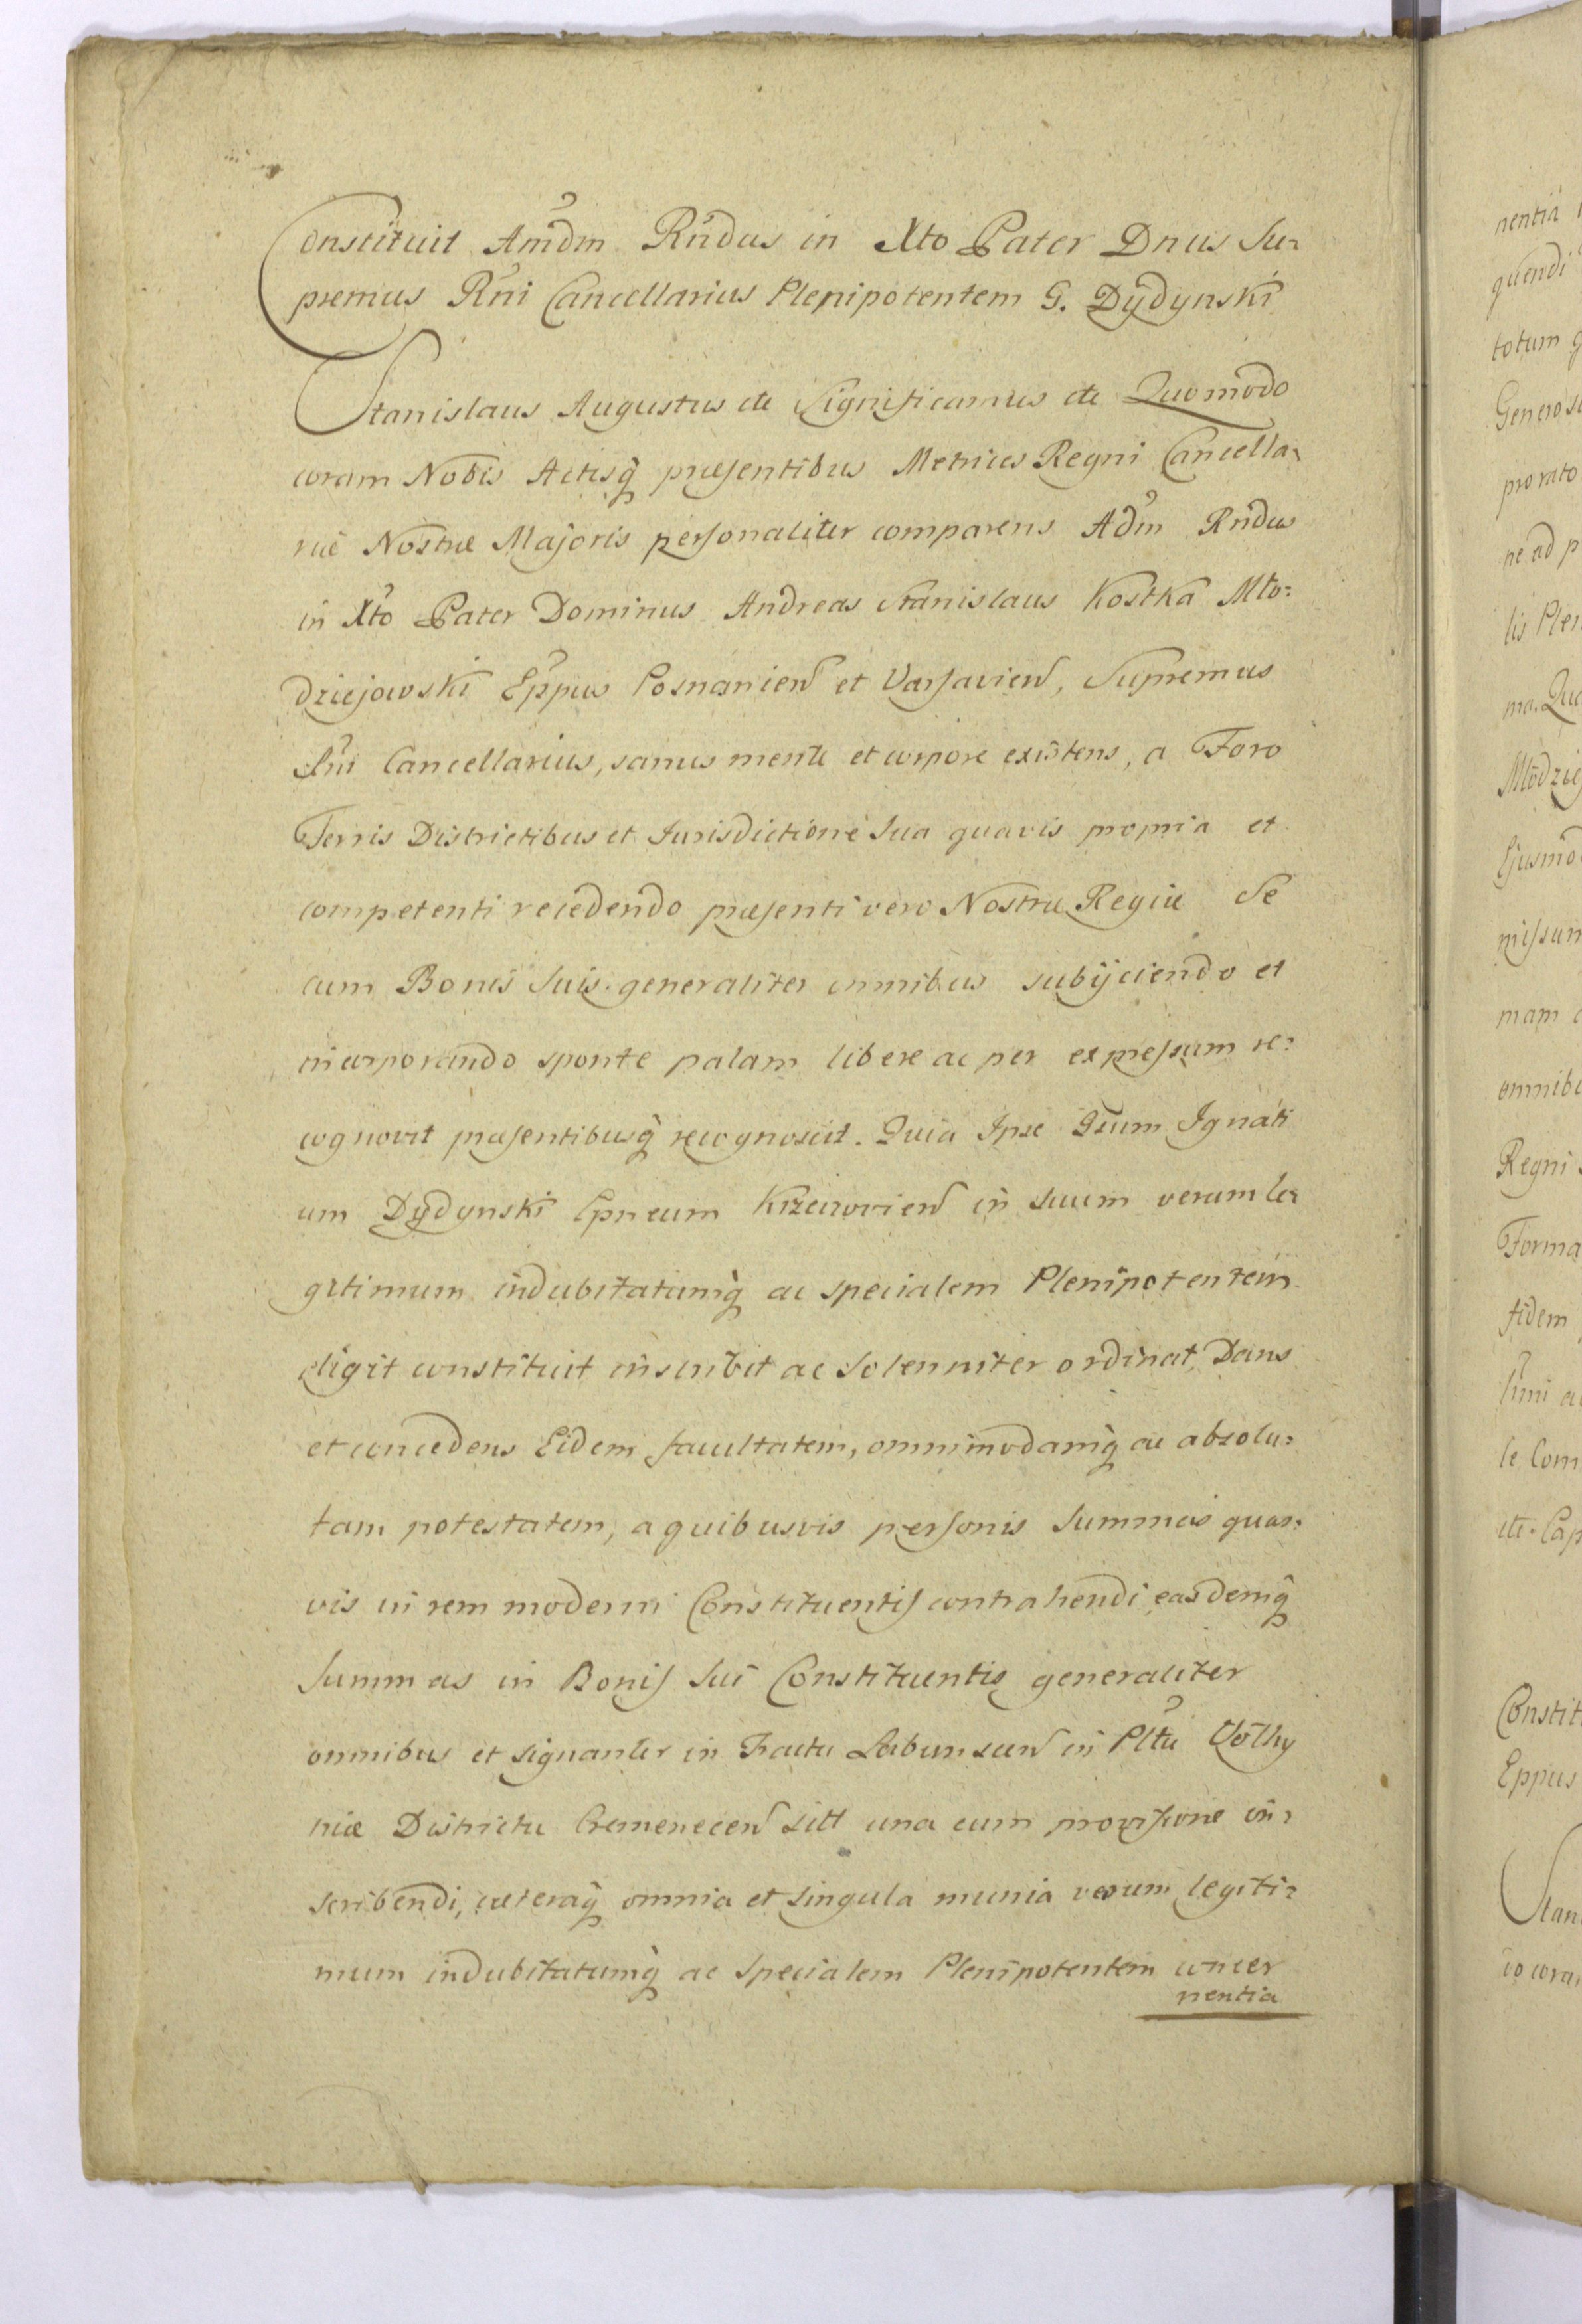 Constituit Amdm Rndus in Xto Pater Dnus Su-
premus Rni Cancellarius Plenipotentem G. Dydynski
Stanislaus Augustus etc Significamus etc Quomodo
coram Nobis Actisq̀ præsentibus Metrices Regni Cancella-
riæ Nostræ Majoris personaliter comparens Adm Rndus
in Xto Pater Dominus Andreas Stanislaus Kostka Mło-
dziejowski Eppus Posnanien et Varsavien, Supremus
Rni Cancellarius, sanus mente et corpore existens, a Foro
Terris Districtibus et Jurisdictione Sua quavis propria et
competenti recedendo præsenti vero Nostræ Regiæ Se
cum Bonis Suis generaliter omnibus subijciendo et
incorporando sponte palam libere ac per expressum re-
cognovit præsentibusq̀ recognoscit. Quia Ipse Gsum Ignati
um Dydynski Epneum in Suum verum le-
gitimum indubitatumq̀ ac specialem Plenipotentem
eligit constituit inscribit ac solenniter ordinat, Dans
et concedens Eidem facultatem, omnimodamq̀ ac absolu-
tam potestatem, a quibusvis personis Summas quas-
vis in rem moderni Constituentis contrahendi easdemq̀
Summas in Bonis Sui Constituentis generaliter
omnibus et signanter in Tractu Labunscen in Pltu Volhy
niæ Districtu Cremenecen sitt una cum provisione in-
scribendi, cæteraq̀ omnia et singula munia verum legiti-
mum indubitatumq̀ ac specialem Plenipotentem concer
nentia
nentia
quendi
totum
pro rato
ne ad
lis
ma.
Ejusmod
mam
omnib
Regni
Forma
fidem
le Com
Constit
Eppus
Stan